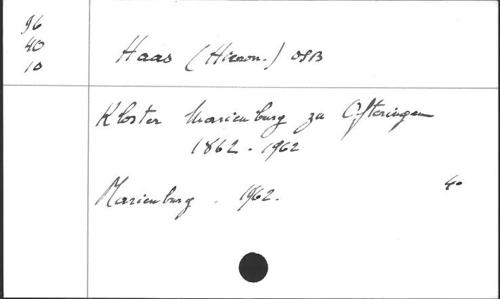 96
40
10
Haas (Hieron.) OSB
Kloster Marienburg zu Ofteringen
1862-1962
Marienburg. 1962.
4°